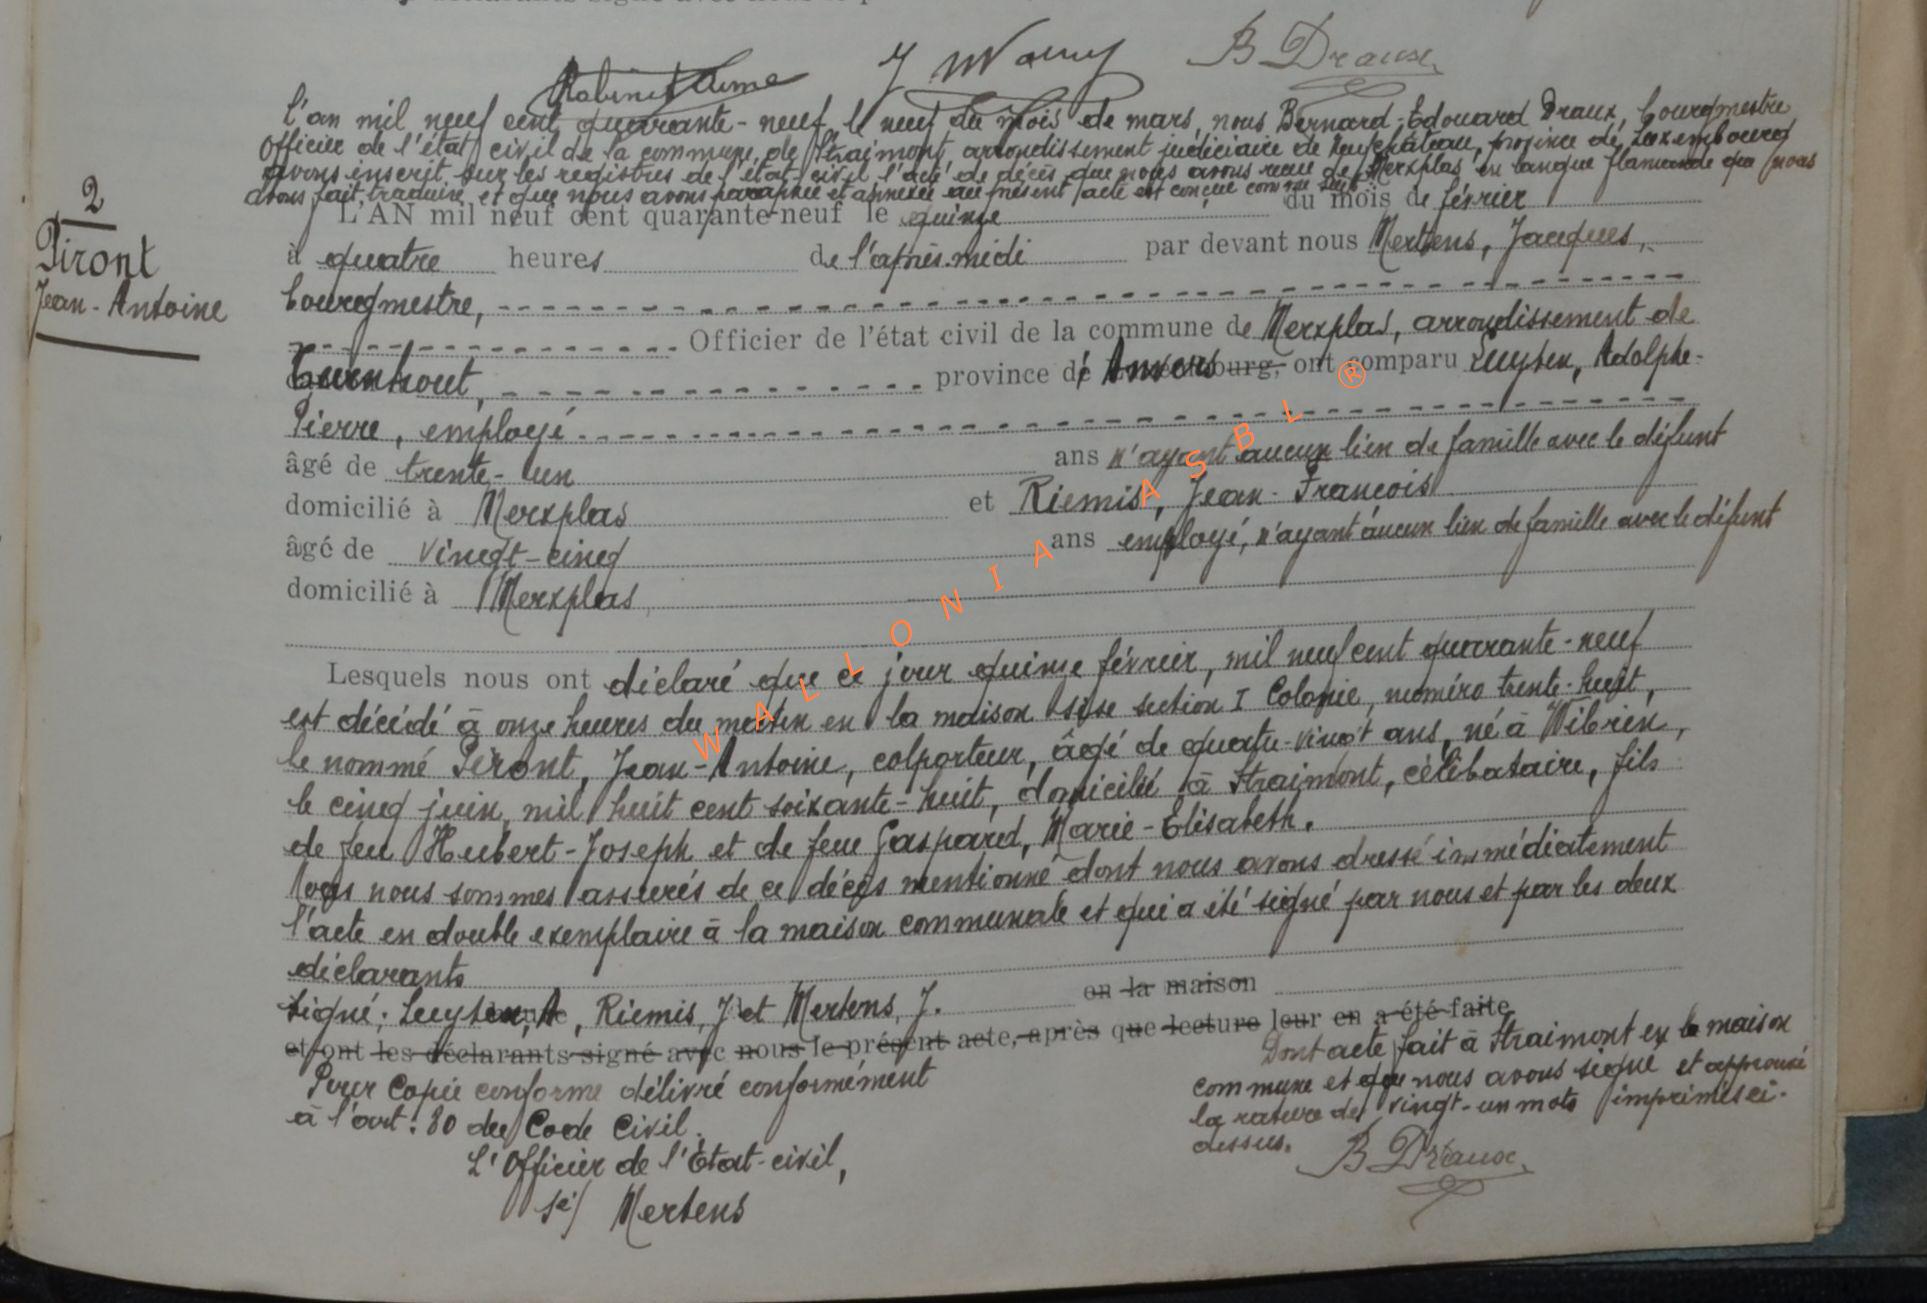 J Maury B Draux
L'an mil neuf cent quarante-neuf, le neuf du mois de mars, nous Bernard-Edouard Draux, bourgmestre
Officier de l'état civil de la commune de Straimont, arrondissement judiciaire de Neufchâteau, province de Luxembourg
avons inscrit sur les registres de l'état-civil l'acte de décès que nous avons reçu de Merxplas en langue flamande que nous
avons fait traduire et que nous avons paraphée et annexée au présent acte est conçue comme suit:
2
Piront
Jean-Antoine
L'AN mil neuf cent quarante-neuf le quinze du mois de février
à quatre heures de l'après-midi par devant nous Mertens, Jacques,
bourgmestre,
Officier de l'état civil de la commune de Merxplas, arrondissement de
Turnhout, province d'Anvers ont comparu Luyten, Adolphe-
Pierre, employé
âgé de trente-un ans n'ayant aucun lien de famille avec le défunt
domicilié à Merxplas et Riemis, Jean-François
âgé de vingt-cinq ans employé, n'ayant aucun lien de famille avec le défunt
domicilié à Merxplas
Lesquels nous ont déclaré que ce jour quinze février, mil neuf cent quarante-neuf
est décédé à onze heures du matin en la maison sise section I Colonie, numéro trente-huit,
le nommé Piront, Jean-Antoine, colporteur, âgé de quatre-vingt ans, né à Wibrin,
le cinq juin, mil huit cent soixante-huit, domicilié à Straimont, célibataire, fils
de feu Hubert-Joseph et de feue Gaspard, Marie-Elisabeth.
Nous nous sommes assurés de ce décès mentionné dont nous avons dressé immédiatement
l'acte en double exemplaire à la maison communale et qui a été signé par nous et par les deux
déclarants
en la maison
Signé: Luyten, A, Riemis, J et Mertens, J.
et ont les déclarants signé avec nous le présent acte, après que lecture leur en a été faite
Dont acte fait à Straimont en la maison
commune et que nous avons signé et approuvé
la rature de vingt-un mots imprimés ci-
dessus.
B Draux
Pour Copie conforme délivré conformément
à l'art. 80 du Code Civil.
L'Officier de l'Etat-civil,
sé/ Mertens
WALLONIA ASBL ®